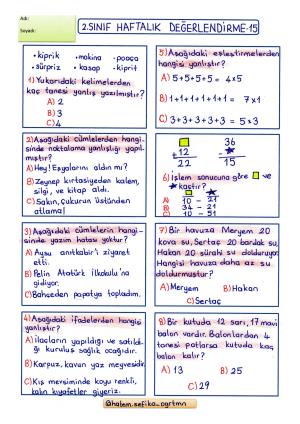 Adı:
Soyadı:
2.SINIF HAFTALIK DEĞERLENDİRME-15
• kiprik • makina • poaça
• sürpriz • kasap • kiprit
1) Yukarıdaki kelimelerden
kaç tanesi yanlış yazılmıştır?
A) 2
B) 3
C) 4
2) Aşağıdaki cümlelerden hangi-
sinde noktalama yanlışlığı yapıl-
mıştır?
A) Hey! Eşyalarını aldın mı?
B) Zeynep kırtasiyeden kalem,
silgi, ve kitap aldı.
C) Sakın, Çukurun üstünden
atlama!
3) Aşağıdaki cümlelerin hangi-
sinde yazım hatası yoktur?
A) Aysu anıtkabir'i ziyaret
etti.
B) Pelin Atatürk İlkokulu'na
gidiyor.
C) Bahçeden papatya topladım.
4) Aşağıdaki ifadelerden hangisi
yanlıştır?
A) ilaçların yapıldığı ve satıldı-
ğı kuruluş sağlık ocağıdır.
B) Karpuz, kavun yaz meyvesidir.
C) Kış mevsiminde koyu renkli,
kalın kıyafetler giyeriz.
5) Aşağıdaki eşleştirmelerden
hangisi yanlıştır?
A) 5+5+5+5 = 4x5
B) 1+1+1+1+1+1 = 7x1
C) 3+3+3+3+3 = 5x3
36
+ 12 -
22 15
6) İşlem sonucuna göre ve
kaçtır?
A) 10 - 21
B) 34 - 21
C) 10 - 51
7) Bir havuza Meryem 20
kova su, Sertaç 20 bardak su,
Hakan 20 sürahi su dolduruyor.
Hangisi havuza daha az su
doldurmuştur?
A) Meryem B) Hakan
C) Sertaç
8) Bir kutuda 12 sarı, 17 mavi
balon vardır. Balonlardan 4
tanesi patlarsa kutuda kaç
balon kalır?
A) 13 B) 25
C) 29
@halem.sefika_ogrtmn